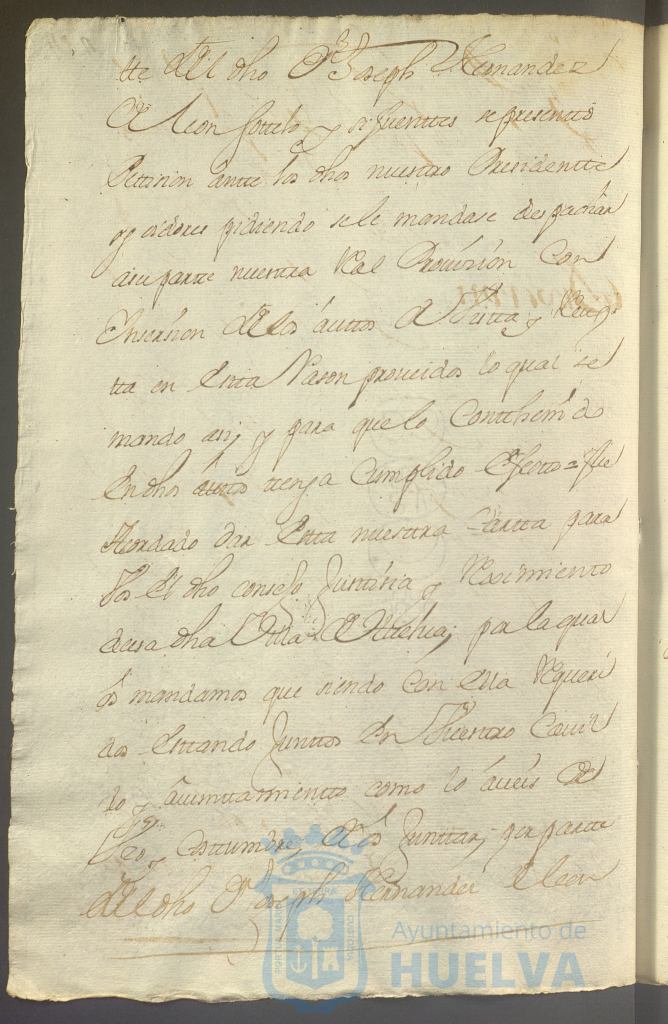 tte del dho Dn Joseph Hernandez
de leon sottelo y sifuenttes se presentto
Petticion antte los dhos nuestro Presidentte
y oidores pidiendo se le mandase despachar
a su partte nuestra Real Provission Con
Insersion de los auttos de Vistta y Revis
tta en estta Rason proveidos lo qual se
mando asi, y para que lo Conttheni do
en dhos auttos tenga Cumplido efectto = fue
Acordado dar estta nuestra Cartta para
Vos el dho consejo Justtisia y Reximiento
de esa dha Villa de Huelva; por la qual
os mandamos que siendo Con ella Requeri
dos estando Junttos en Vuestro Cavil
do y aiunttamientto como lo aveis de
Vso y costtumbre, de os Junttar; por partte
del dho Dn Joseph Hernandez de leon
Ayuntamiento de
HUELVA